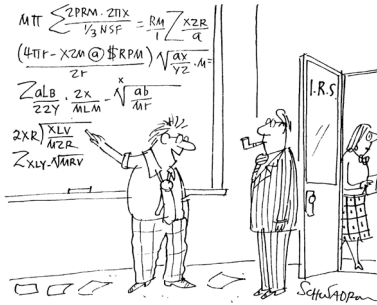 Mπ Σ 2PRM · 2πX / 1/3 NSF = RM / 1 Σ XZR / a
(4πr - XZM @ $RPM) / 2r √ ax / YZ · M=
ZaLB / 22Y · 2X / MLM - x√ ab / Mr
2XR) XLV / MZR
Z XLY · √MRV
I.R.S.
SCHWADRON